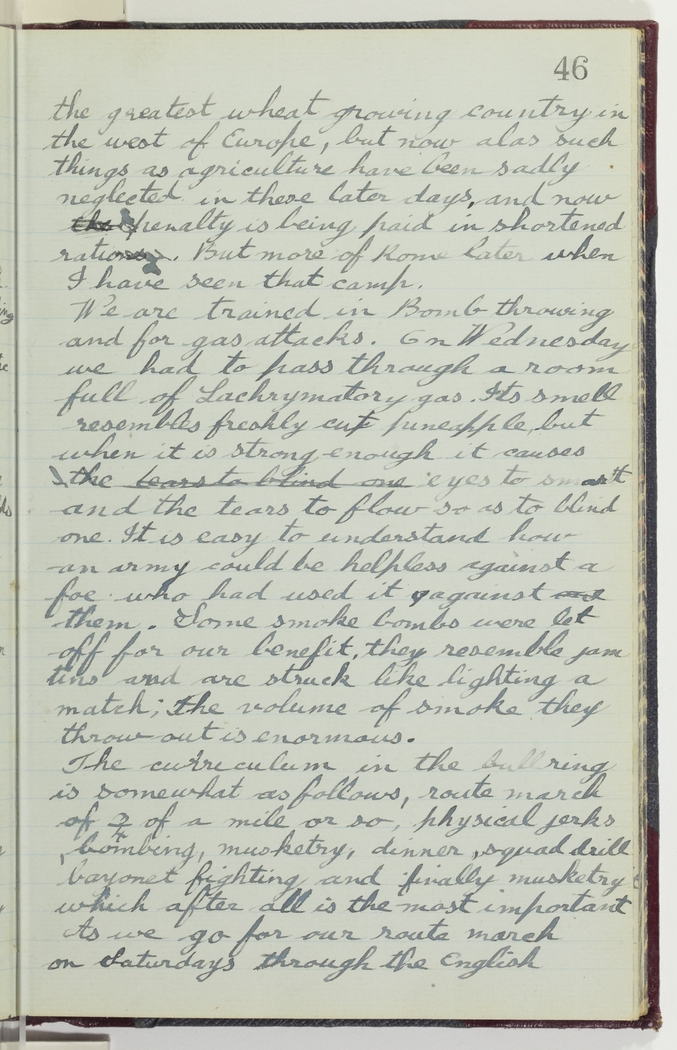 46
the greatest wheat growing country in
the west of Europe, but now alas such
things as agriculture have been sadly
neglected in these later days, and now
the penalty is being paid in shortened
rations. But more of Rome later when
I have seen that camp.
We are trained in Bomb throwing
and for gas attacks. On Wednesday
we had to pass through a room
full of Lachrymatory gas. Its smell
resembles freshly cut puneapple, but
when it is strong enough it causes
the tears to blind one eyes to smart
and the tears to flow so as to blind
one. It is easy to understand how
an army could be helpless against a
foe who had used it against
them. Some smoke bombs were let
off for our benefit, they resemble jam
tins and are struck like lighting a
match; the volume of smoke they
throw out is enormous.
The curriculum in the bull ring
is somewhat as follows, route march
of 3/4 of a mile or so, physical jerks
, bombing, musketry, dinner, squad drill
bayonet fighting and finally musketry
which after all is the most important
As we go for our route march
on Saturdays through the English